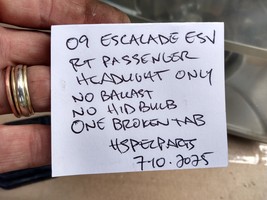 09 ESCALADE ESV
RT PASSENGER
HEADLIGHT ONLY
NO BALLAST
NO HID BULB
ONE BROKEN TAB
HSPECPARTS
7-10-2025